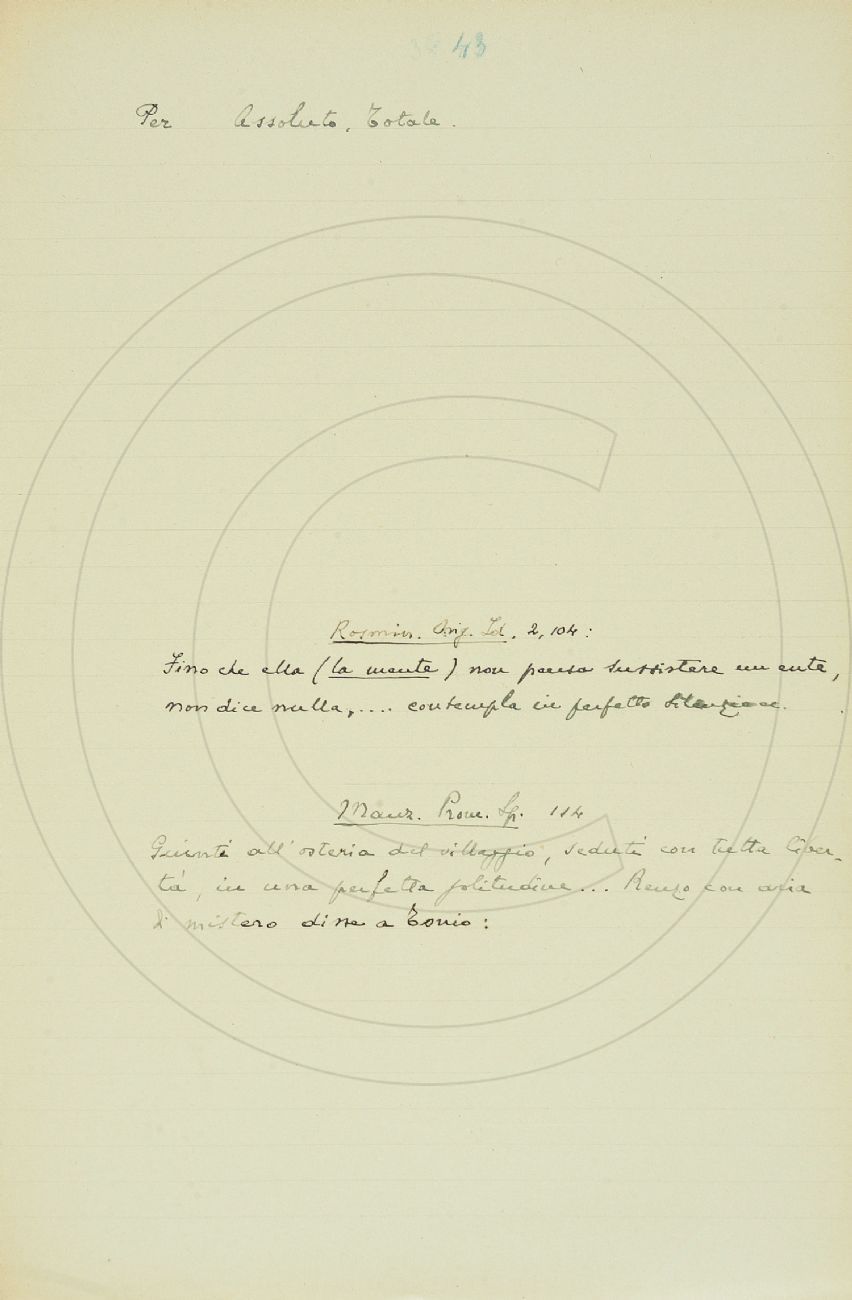 43
Per Assoluto, Totale.
Rosmin. Orig. Id. 2, 104:
Fino che ella (la mente) non pensa sussistere un ente,
non dice nulla, .... contempla in perfetto silenzio.
Manz. Prom. Sp. 114
Giunti all'osteria del villaggio, seduti con tutta liber-
tà, in una perfetta solitudine... Renzo con aria
di mistero disse a Tonio: